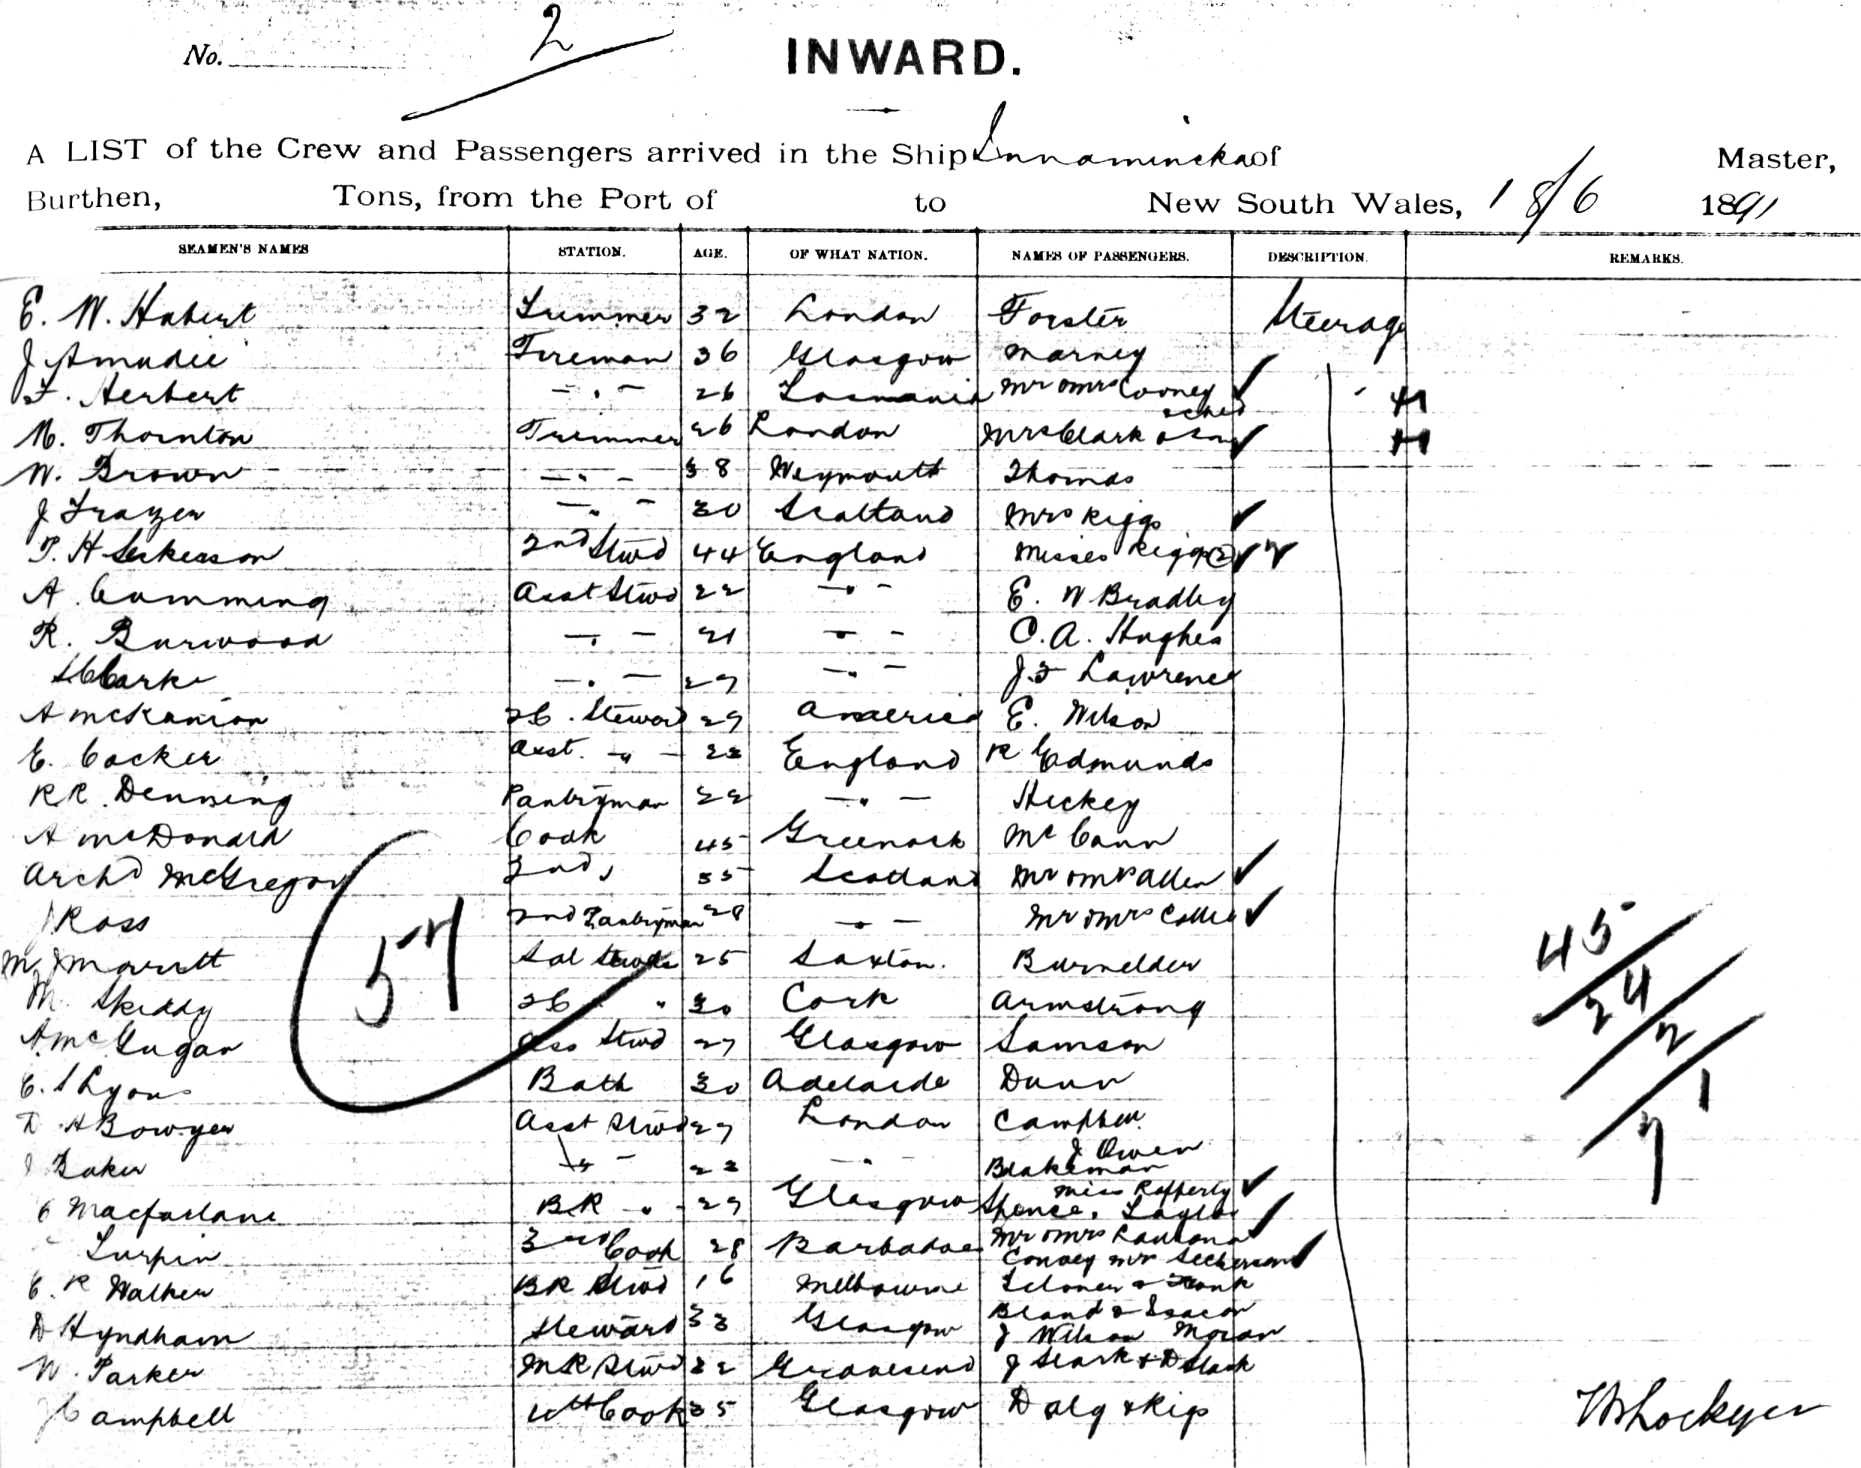 No. 2
INWARD.
A LIST of the Crew and Passengers arrived in the Ship Innamincka of Master,
Burthen, Tons, from the Port of to New South Wales, 18/6 1891
SEAMEN'S NAMES STATION. AGE. OF WHAT NATION. NAMES OF PASSENGERS. DESCRIPTION. REMARKS.
E. W. Hubert Trimmer 32 London Forster Steerage
J Amudie Fireman 36 Glasgow Marney
F. Herbert — " — 26 Tasmania Mr & Mrs Cooney
& child
M. Thornton Trimmer 26 London Mrs Clark & Son
W. Brown — " — 38 Weymouth Thomas
J Frazer — " — 30 Scotland Mrs Riggs
T. H Sekerson 2nd Stwd 44 England Misses Riggs (2)
A. Cumming Asst Stwd 22 — " — E. W Bradley
R. Burwood — " — 21 — " — C. A. Hughes
Clark — " — 27 — " — J. F Lawrence
A McKanion 2C. Steward 29 America E. Wilson
E. Cocker Asst. — " — 22 England R Edmunds
R R. Denning Pantryman 22 — " — Hickey
A McDonald Cook 45 Greenock McCann
Archd McGregor 2nd " 35 Scotland Mr & Mrs Allen
J Ross 2nd Pantryman 28 — " — Mr & Mrs Collie
M J Marrett Sal Stwds 25 Saxton. Burnelder
M. Skiddy 2C " " 30 Cork Armstrong
A. McGugan Ass Stwd 27 Glasgow Samson
C. S Lyons Bath 30 Adelaide Dunn
D. H Bowyer Asst Stwd 27 London Campbell
J Owen
J Baker " — 22 — " — Blakeman
Miss Rafferty
C Macfarlane BR " 29 Glasgow Spence, Taylor
Mr & Mrs
Turpin 3rd Cook 28 Barbadoes Convey Mr Seckerson
C. R Walker BR Stwd 16 Melbourne
Bland & Isacon
D Hyndham Steward 33 Glasgow J Wilson Moran
W. Parker MR Stwd 32 Gravesend J Slark & D Slark
J Campbell Cook 35 Glasgow Daly & Kip
57
45
24
2
1
7
Lockyer